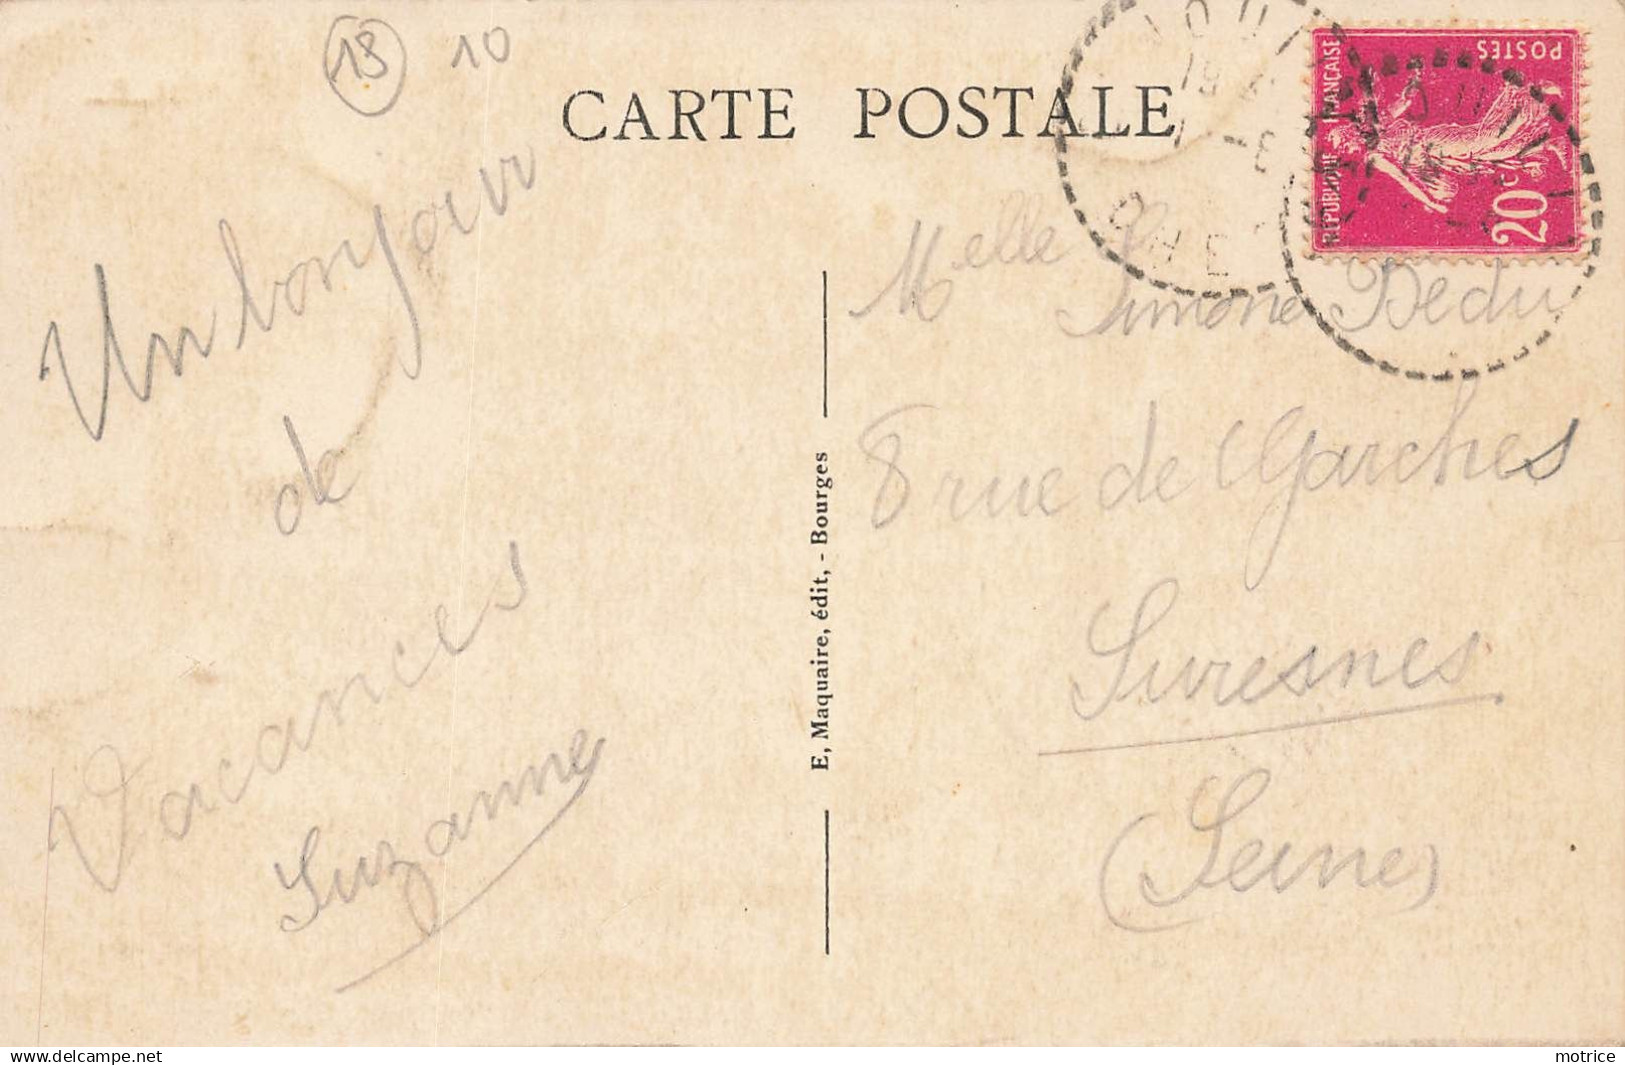 18 10
CARTE POSTALE
Un bonjour
de
Vacances
Suzanne
E, Maquaire, édit, - Bourges
RÉPUBLIQUE FRANÇAISE
POSTES
20c
CHER
Melle Simone Bedu
8 rue de Garches
Suresnes
(Seine)
https://www.delcampe.net
motrice